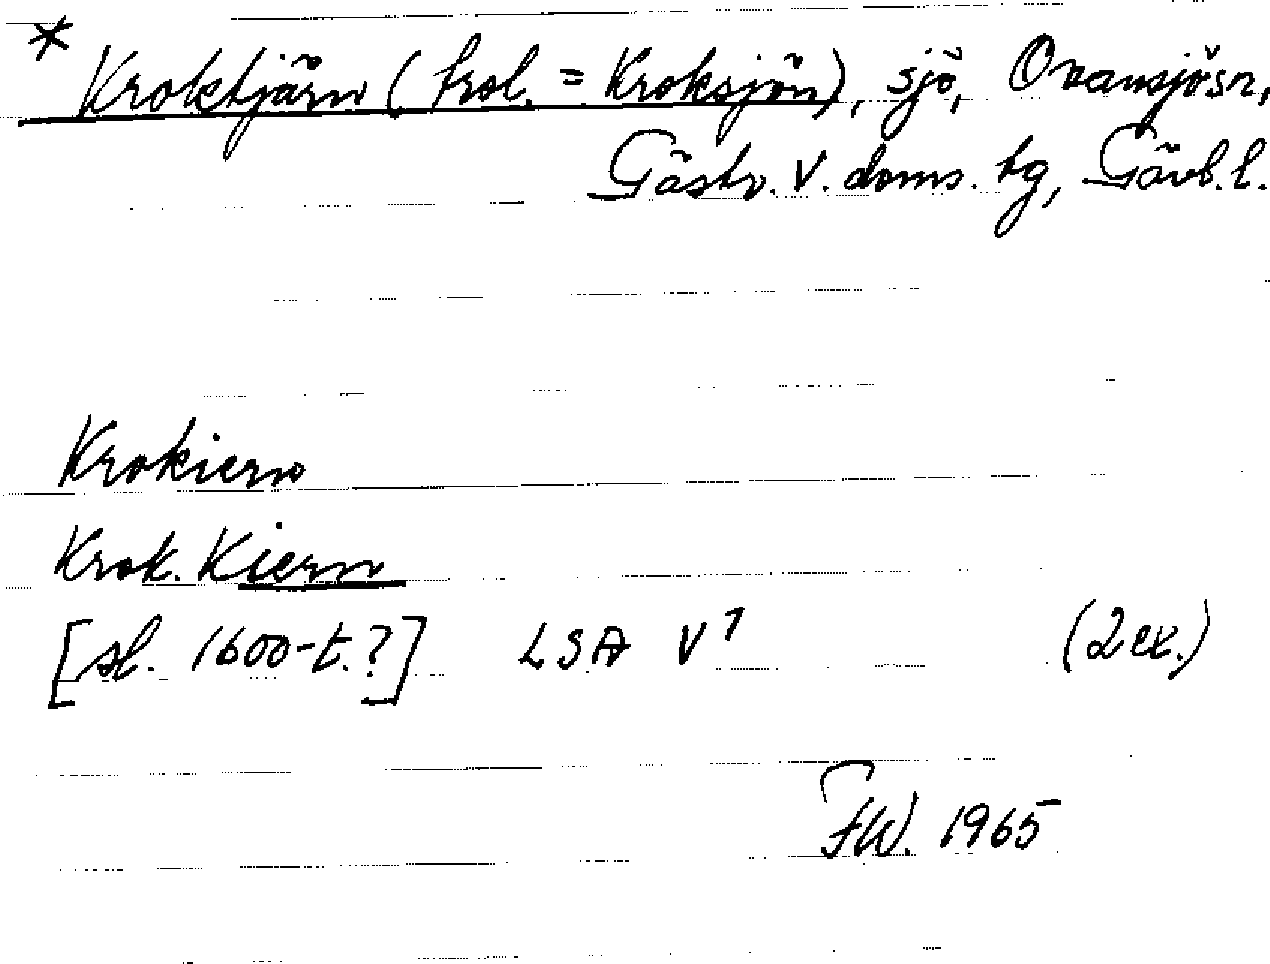 * Kroktjärn (trol. = Kroksjön), sjö, Ovansjö sn,
Gästr. V. doms. tg, Gävb. l.
Krokiern
Krok. Kiern
[sl. 1600-t.?] LSA V1 (2 ex.)
FW. 1965